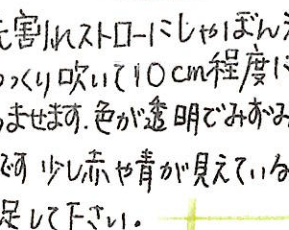 先割れストローにしゃぼん
っくり吹いて10cm程度に
ませます.色が透明でみずみ
です 少し赤や青が見えている
足して下さい。